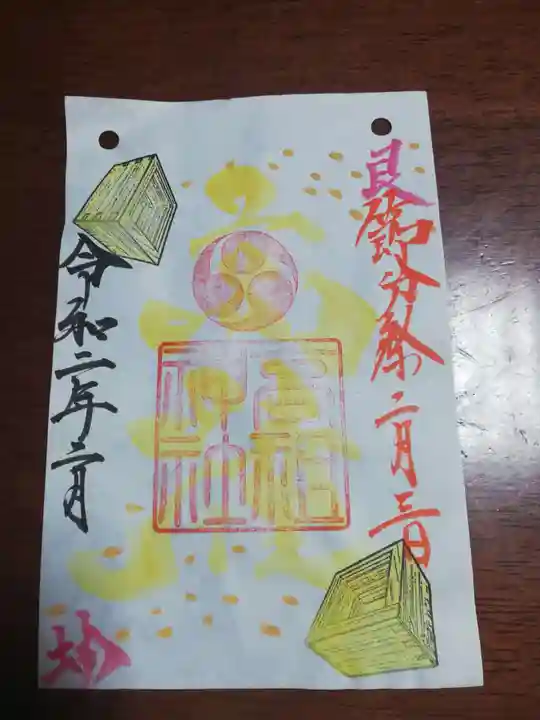 艮
節分祭二月三日
高祖
神社
令和二年二月
坤